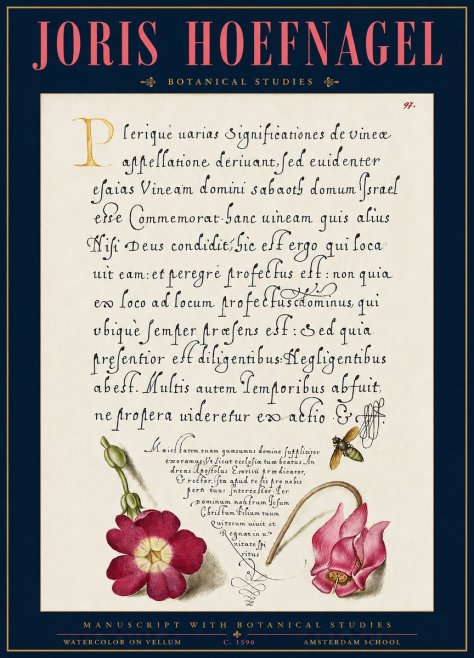 JORIS HOEFNAGEL
BOTANICAL STUDIES
97.
Plerique uarias Significationes de vineæ
appellatione deriuant, sed euidenter
esaias Vineam domini sabaoth domum Israel
esse Commemorat. hanc uineam quis alius
Nisi Deus condidit; hic est ergo qui loca
uit eam: et peregre profectus est: non quia
ex loco ad locum profectus dominus, qui
vbique semper præsens est: Sed quia
pręsentior est diligentibus: Negligentibus
abest. Multis autem Temporibus abfuit,
ne propera uideretur exactio. &
Maiestatem tuam quæsumus domine suppliciter
exoramus: Vt sicut ecclesiæ tuæ beatus An
dreas Apostolus Extitit prædicator,
& rector, ita apud te sit pro nobis
perpetuus Intercessor. Per
Dominum nostrum Iesum
Christum Filium tuum
Qui tecum uiuit et
Regnat in u
nitate spi
ritus
MANUSCRIPT WITH BOTANICAL STUDIES
WATERCOLOR ON VELLUM
C. 1590
AMSTERDAM SCHOOL